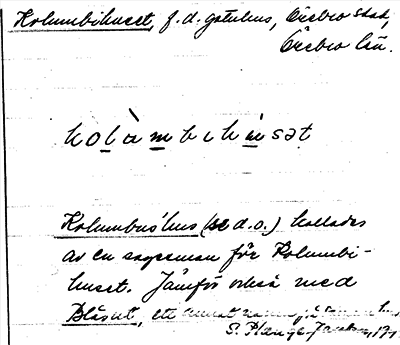 Kolumbihuset, f.d. gatuhus, Örebro stad,
Örebro län.
kolùmbihùsət
Kolumbus'hus (se d.o.) kallades
av en sagesman för Kolumbi-
huset. Jämför också med
Blåsut, ett annat namn på
S.